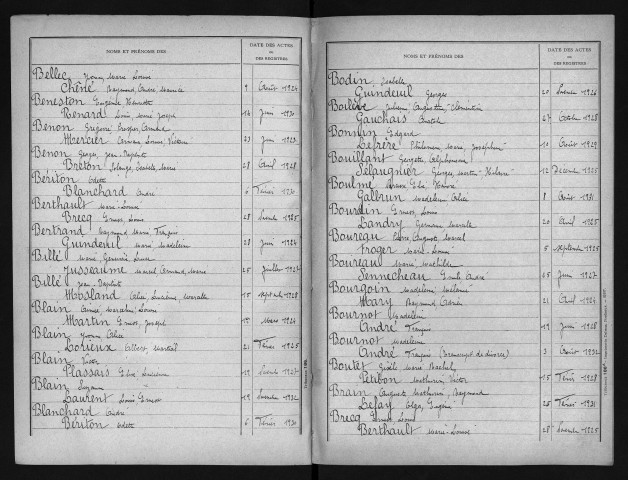 NOMS ET PRÉNOMS DES
DATE DES ACTES
OU
DES REGISTRES
Bellec Yvonne Marie Louise
Chêné Raymond, André, Maurice 9 Août 1924
Beneston Eugénie Henriette
Renard Louis, Marie Joseph 14 Juin 1930
Benon Grégoire Prosper Armand
Mercier Louise, Victoire 23 Juin 1923
Benon Georges, Jean-Baptiste
Breton Solange, Marie 28 Avril 1928
Bériton Odette
Blanchard André 6 Février 1930
Berthault Marie-Louise
Brecq Ernest, Louis 28 Novembre 1925
Bertrand Raymond Marie, François
Guindeuil Marie Madeleine 28 Juin 1924
Billé Marie, Germaine Louise
Jusseaume Marcel Armand, Marie 25 Juillet 1927
Billé Jean-Baptiste
Mosland Alice, Lucienne, Marcelle 15 Septembre 1928
Blain Aimée, Marceline, Louise
Martin Ernest, Joseph 15 Mars 1924
Blain Yvonne Alice
Lorieux Albert, Martial 21 Février 1925
Blain Victor
Plassais Lucienne 19 Novembre 1927
Blain Suzanne
Laurent Louis Ernest 19 Novembre 1932
Blanchard André
Bériton Odette 6 Février 1930
NOMS ET PRÉNOMS DES
DATE DES ACTES
OU
DES REGISTRES
Bodin Isabelle
Guindeuil Georges 20 Novembre 1926
Boulève Juliette Augustine, Clémentine
Gauchais 27 Octobre 1928
Bonnin Edgard
Lefrère Philomène, Marie, Joséphine 10 Août 1929
Bouillant Georgette Alphonsine
Sélaugnier Georges, Martin-Hilaire 12 Décembre 1925
Boulmé
Gallerun Madeleine Alice 8 Août 1931
Bourdin Ernest, Louis
Landry Germaine Marcelle 20 Avril 1925
Boureau Pierre, Auguste, Marcel
Froger Marie-Louise 5 Septembre 1925
Boureau Marie Mathilde
Sennecheau Emile André 25 Juin 1927
Bourgoin Madeleine Mélanie
Mary Raymond 21 Avril 1924
Bournot Madeleine
André François 19 Juin 1928
Bournot Madeleine
André François (Transcript. de divorce) 3 Août 1932
Boutet Gisèle Marie Rachel
Petibon Mathurin, Victor 15 Février 1928
Brain Auguste Mathurin, Raymond
Lefay Olga, Eugénie 25 Février 1931
Brecq Ernest, Louis
Berthault Marie-Louise 28 Novembre 1925